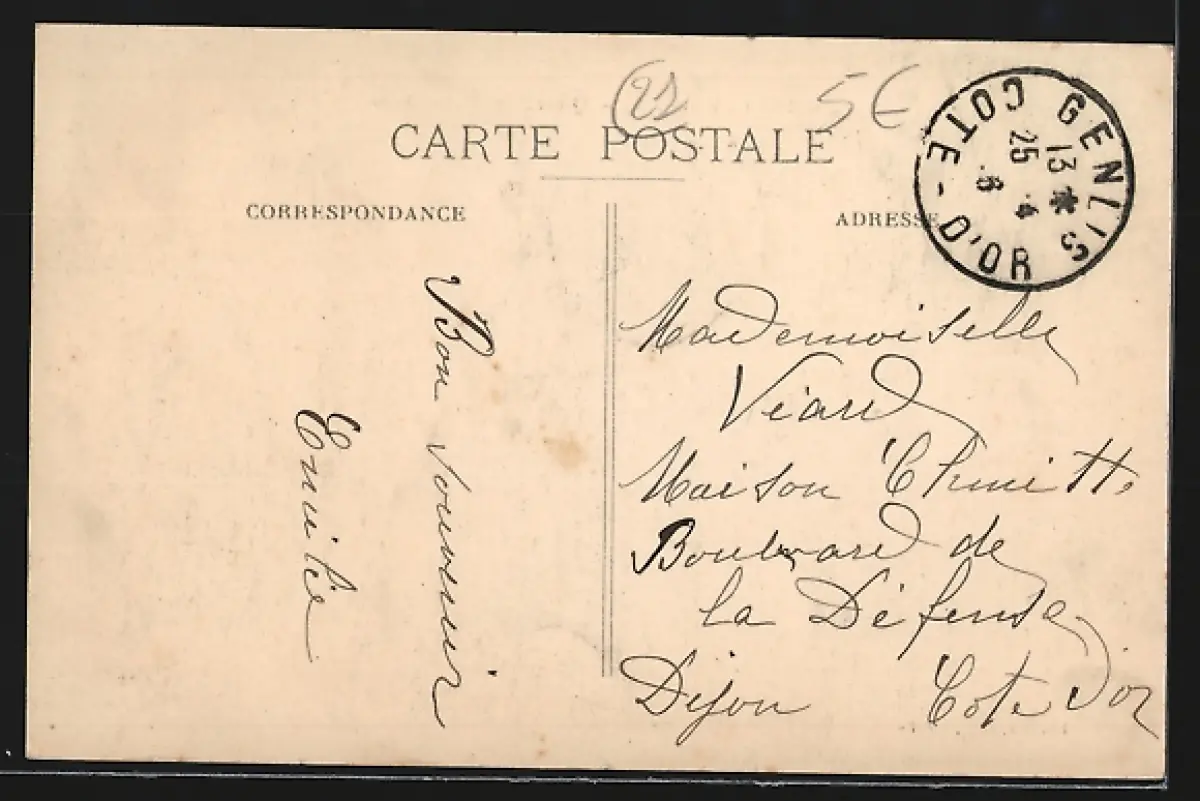 21
5€
CARTE POSTALE
CORRESPONDANCE
ADRESSE
GENLIS
COTE-D'OR
13 *
25 4
6
Bon souvenir
Emile
Mademoiselle
Viard
Maison
Boulevard de
la Défense
Dijon Cote d'or